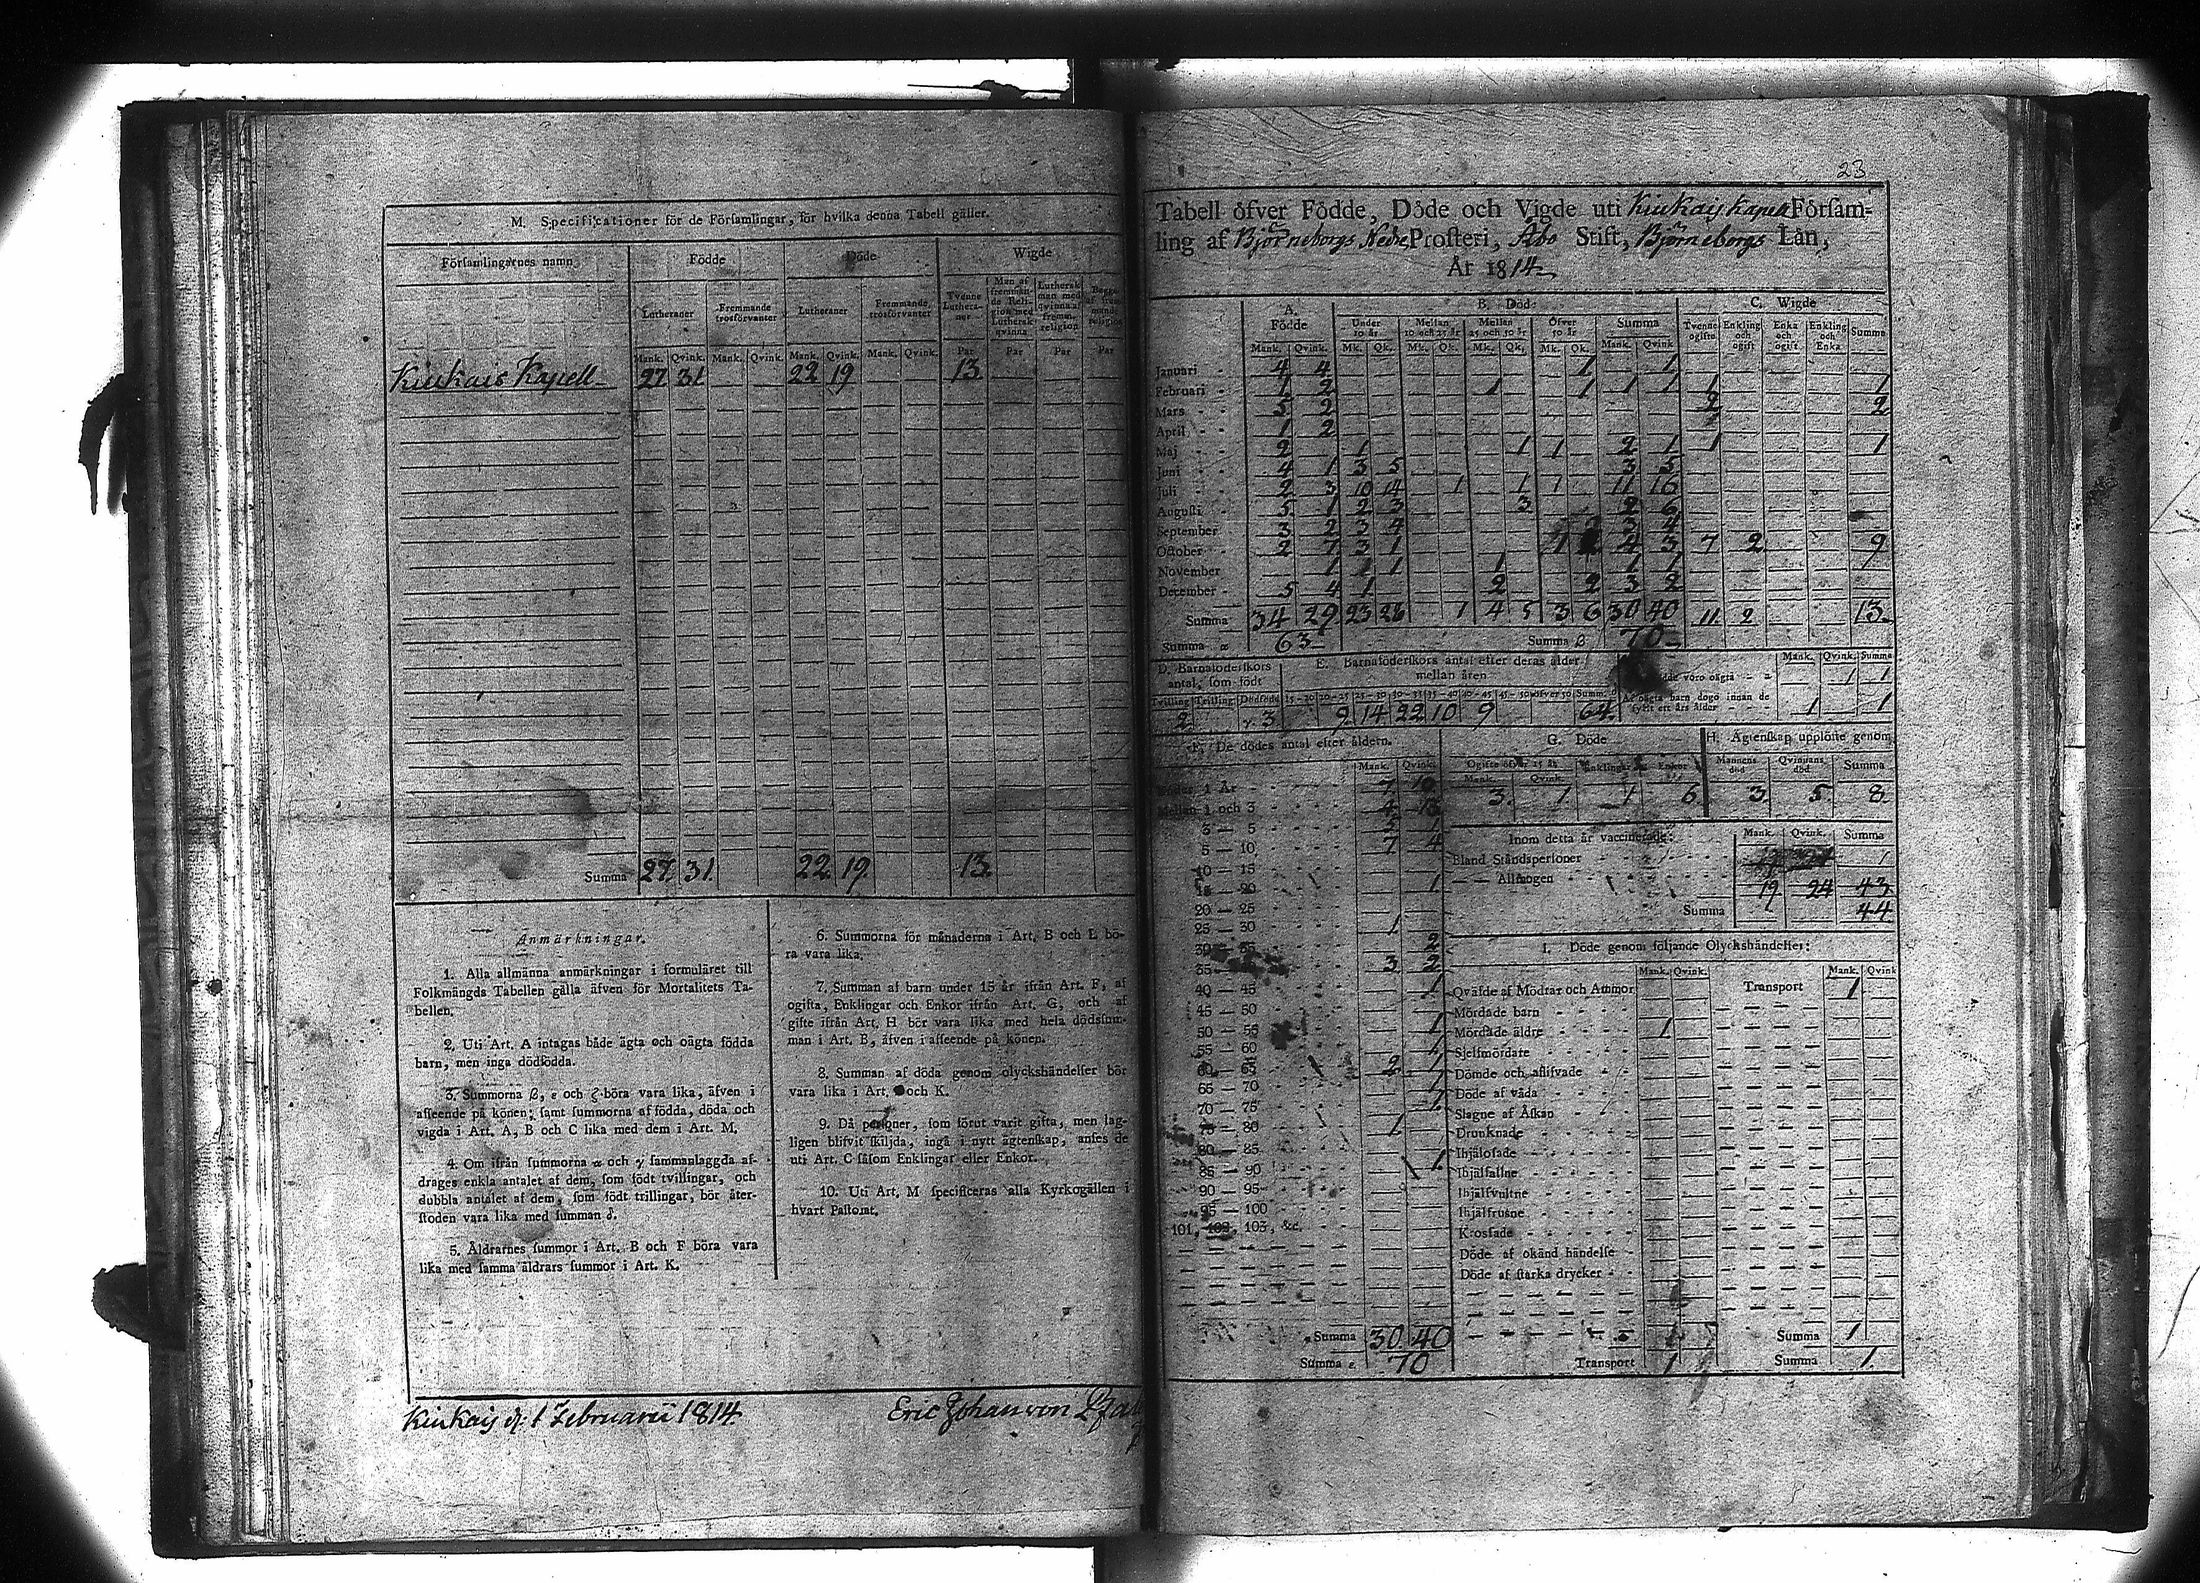 M. Specificationer för de Församlingar, för hvilka denna Tabell gäller.
Församlingarnes namn
Födde
Döde
Wigde
Lutheraner
Fremmande trosförvanter
Lutheraner
Fremmande trosförvanter
Tvenne Lutheraner
Man af fremmande Religion med Luthersk qvinna
Luthersk man med qvinna af fremm. religion
Mank. Qvink. Mank. Qvink. Mank. Qvink. Mank. Qvink. Par Par Par Par
Kiukais Kapell 27 31 22 19 13
Summa 27. 31. 22 19. 13.
Anmärkningar.
1. Alla allmänna anmärkningar i formuläret till
Folkmängds Tabellen gälla äfven för Mortalitets Ta-
bellen.
2. Uti Art. A intagas både ägta och oägta födda
barn, men inga dödfödda.
3. Summorna β, ε och ζ böra vara lika, äfven i
afseende på könen; samt summorna af födda, döda och
vigda i Art. A, B och C lika med dem i Art. M.
4. Om ifrån summorna α och γ sammanlaggda af-
drages enkla antalet af dem, som födt tvillingar, och
dubbla antalet af dem, som födt trillingar, bör åter-
stoden vara lika med summan δ.
5. Åldrarnes summor i Art. B och F böra vara
lika med samma åldrars summor i Art. K.
6. Summorna för månaderna i Art. B och L bö-
ra vara lika.
7. Summan af barn under 15 år ifrån Art. F, af
ogifta, Enklingar och Enkor ifrån Art. G, och af
gifte ifrån Art. H bör vara lika med hela dödssum-
man i Art. B, äfven i afseende på könen.
8. Summan af döda genom olyckshändelser bör
vara lika i Art. och K.
9. Då personer, som förut varit gifta, men lag-
ligen blifvit skiljda, ingå i nytt ägtenskap, anses de
uti Art. C såsom Enklingar eller Enkor.
10. Uti Art. M specificeras alla Kyrkogällen i
hvart Pastorat.
Kiukais d. 1 Februarii 1814.
Eric Johan von
23
Tabell öfver Födde, Döde och Vigde uti Kiukais Kapell Försam-
ling af Björneborgs Nedre Prosteri, Åbo Stift, Björneborgs Län,
År 1814
A. Födde
B. Döde
C. Wigde
Under 10 år
Mellan 10 och 25 år
Mellan 25 och 50 år
Öfver 50 år
Summa
Tvenne ogifte
Enkling och ogift
Enka och ogift
Enkling och Enka
Summa
Mank. Qvink. Mk. Qk. Mk. Qk. Mk. Qk. Mk. Qk. Mank. Qvink
Januari 4 4 1 1
Februari 1 2 1 1 1 1 1 1
Mars 2 2 2
April 1 2
Maj 2 1 1 1 2 1 1 1
Juni 4 1 3 5 3 5
Juli 2 3 10 14 1 1 1 11 16
Augusti 5 1 2 3 3 2 6
September 3 2 3 4 3 4
October 2 7 3 1 4 3 7 2 9
November 1 1 1 1 1
December 5 4 1 2 2 3 2
Summa 34 29 23 26 1 4 5 3 6 30 40 11 2 13
Summa α 63
Summa β 70
D. Barnaföderskors antal, som födt
E. Barnaföderskors antal efter deras ålder mellan åren
Tvilling Trilling Dödfödd 15—20 20—25 25—30 30—35 35—40 40—45 45—50 öfver 50 Summ. δ
2 γ 3 9 14 22 10 9 64
Mank. Qvink. Summa
voro oägta 1 1
Af oägta barn dogo innan de
fyllt ett års ålder 1 1
F. De dödes antal efter åldern.
Mank. Qvink.
Under 1 År 7
Mellan 1 och 3
3 — 5
5 — 10 7 4
10 — 15
15 — 20 1
20 — 25
25 — 30 1
30 — 35 2
35 3 2
40 — 45 1
45 — 50
50 — 55 1
55 — 60 1
60 — 65 2 1
65 — 70
70 — 75
75 — 80 1
80 — 85
85 — 90 1
90 — 95
95 — 100
101, 102, 103, &c.
Summa 30 40
Summa ε 70
G. Döde
Ogifte öfver 15 år
Enklingar
Enkor
Mank. Qvink.
3. 1 1 6
H. Ägtenskap upplöste genom
Mannens död
Qvinnans död
Summa
3. 5. 8.
Inom detta år vaccinerade:
Mank. Qvink. Summa
Bland Ståndspersoner 1
— — Allmogen 19 24 43
Summa 44
I. Döde genom följande Olyckshändelser:
Mank. Qvink.
Mank. Qvink
Qväfde af Mödrar och Ammor
Transport 1
Mördade barn
Mördade äldre 1
Sjelfmördare
Dömde och aflifvade
Döde af våda
Slagne af Åskan
Drunknade
Ihjälofade
Ihjälfallne
Ihjälsvultne
Ihjälfrusne
Krossade
Döde af okänd händelse
Döde af starka drycker
Summa 1
Transport 1
Summa 1